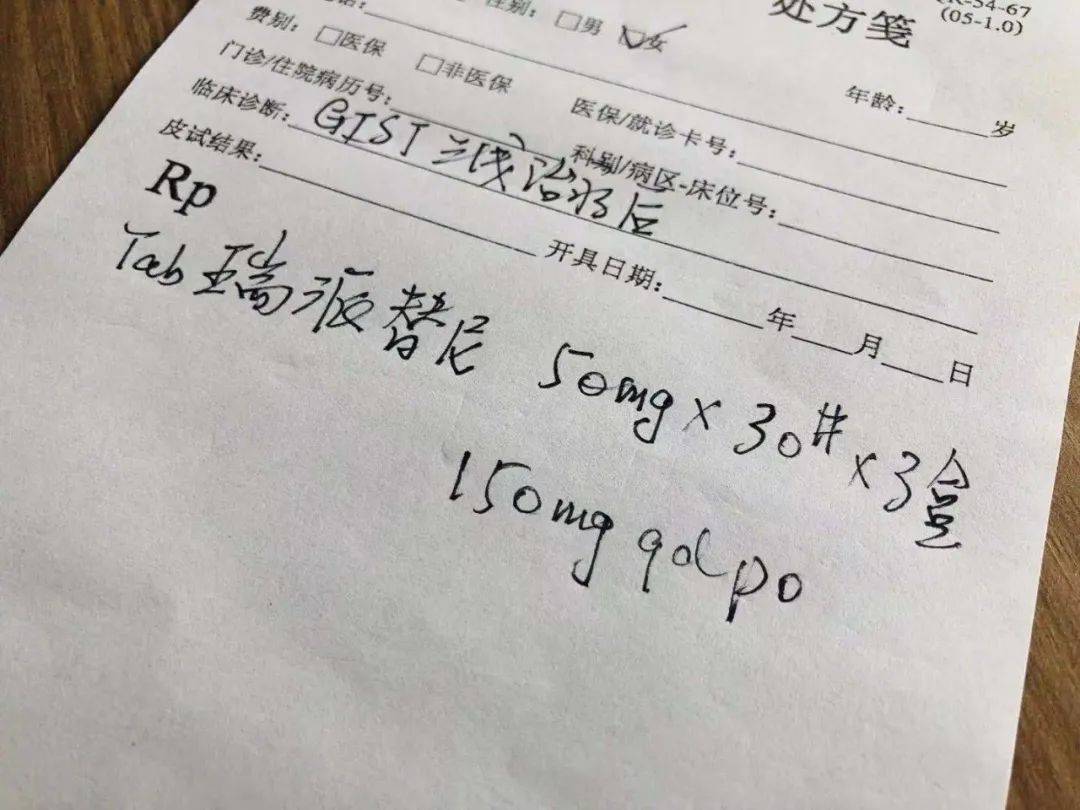 处方笺
-54-67
(05-1.0)
性别: □男 ☑女
费别: □医保 □非医保
年龄:______岁
门诊/住院病历号:
医保/就诊卡号:
临床诊断: GIST 三线治疗后
科别/病区-床位号:
皮试结果:
开具日期:______年____月____日
Rp
Tab 瑞派替尼 50mg × 30# × 3盒
150mg qd po